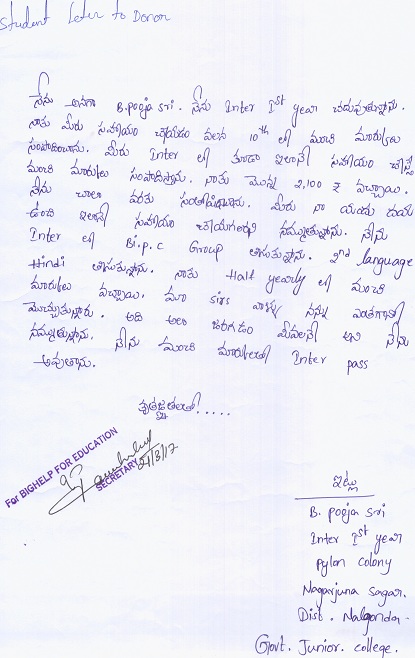 Student Letter to Donor
నేను అనగా B.pooja sri. నేను Inter Ist year చదువుతున్నాను.
నాకు మీరు సహాయం చేయడం వలన 10th లో మంచి మార్కులు
సంపాదించాను. మీరు Inter లో కూడా ఇలానే సహాయం చేస్తే
మంచి మార్కులు సంపాదిస్తాను. నాకు మొన్న 2,100 ₹ వచ్చాయి.
నేను చాలా వరకు సంతోషించాను. మీరు నా యందు దయ
ఉంచి ఇలానే సహాయం చేయగలరని నమ్ముతున్నాను. నేను
Inter లో Bi.p.c Group తీసుకున్నాను. 2nd language
Hindi తీసుకున్నాను. నాకు Half yearly లో మంచి
మార్కులు వచ్చాయి. మా sirs వాళ్ళు నన్ను ఎంతగానో
మెచ్చుకున్నారు. అది అలా జరగడం మీవలనే అని నేను
నమ్ముతున్నాను. నేను మంచి మార్కులతో Inter pass
అవుతాను.
కృతజ్ఞతలతో.....
For BIGHELP FOR EDUCATION
SECRETARY
21/3/12
ఇట్లు
B. pooja sri
Inter Ist year
Pylon colony
Nagarjuna sagar.
Dist. Nalgonda -
Govt. Junior. college.